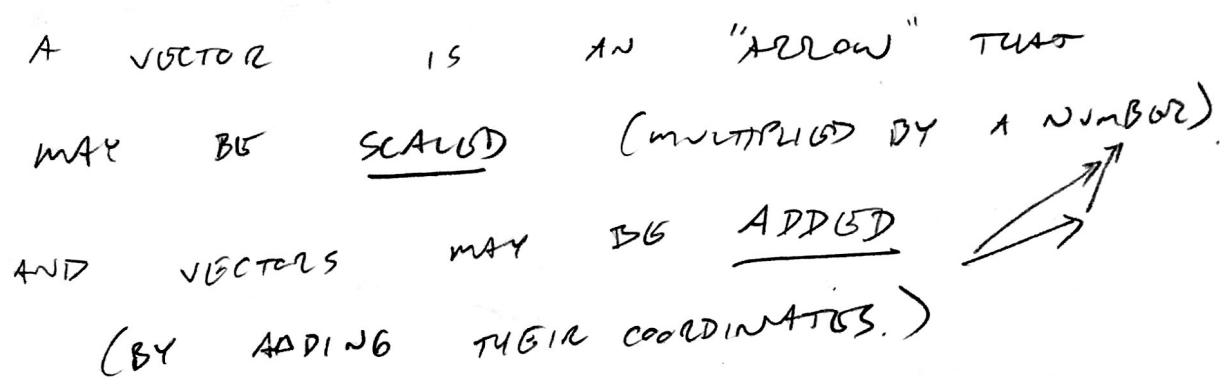 A VECTOR IS AN "ARROW" THAT
MAY BE SCALED (MULTIPLIED BY A NUMBER).
AND VECTORS MAY BE ADDED
(BY ADDING THEIR COORDINATES.)